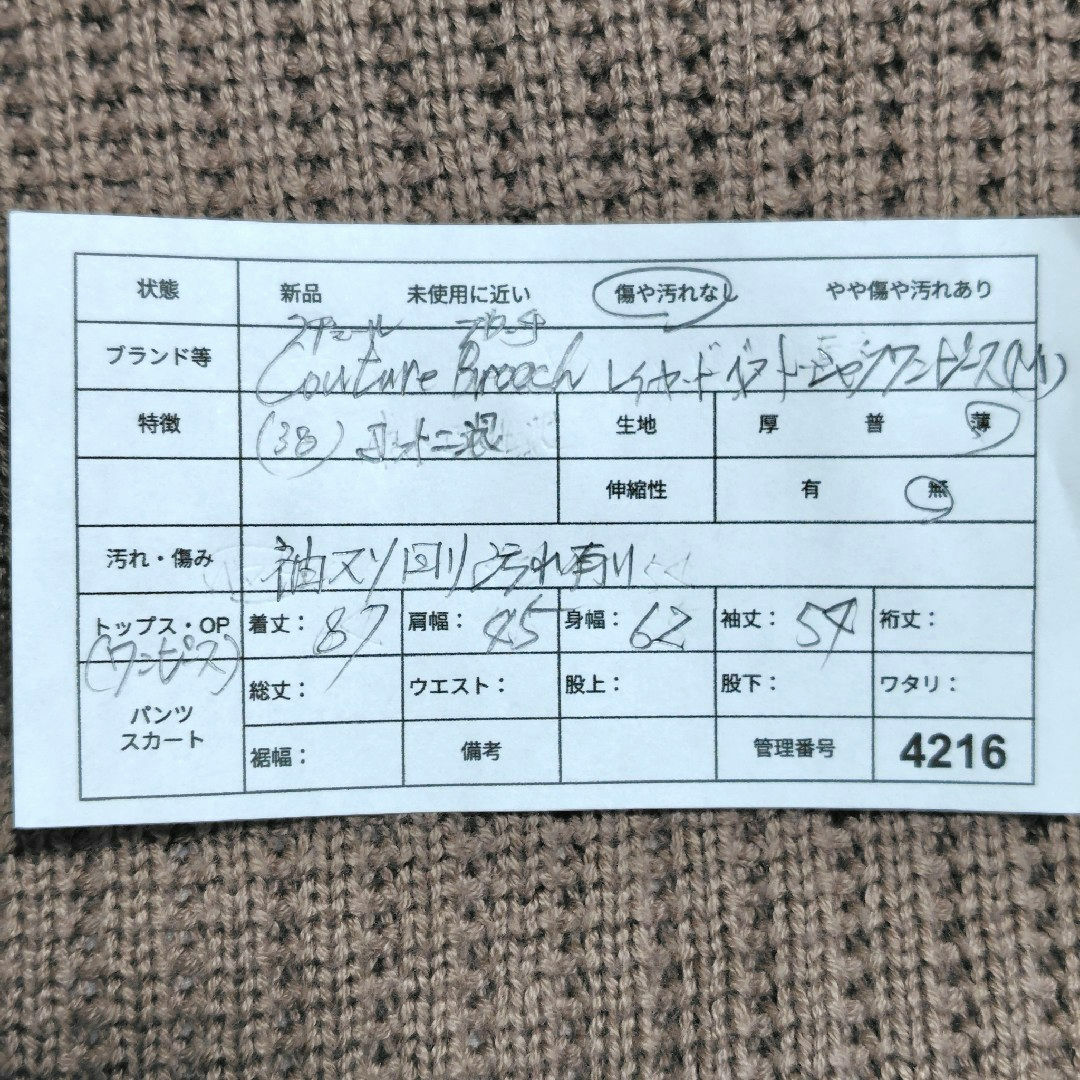 状態 新品 未使用に近い 傷や汚れなし やや傷や汚れあり
クチュール ブローチ
ブランド等 Couture Brooch レイヤードベスト ワンピース(M)
特徴 (38) 生地 厚 普 薄
伸縮性 有 無
汚れ・傷み 袖スソ回り汚れ有り
トップス・OP 着丈： 87 肩幅： 45 身幅： 62 袖丈： 54 裄丈：
(ワンピース)
総丈： ウエスト： 股上： 股下： ワタリ：
パンツ
スカート
裾幅： 備考 管理番号 4216